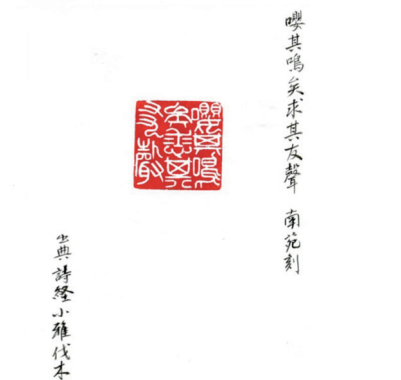 嚶其鳴矣求其友聲 南苑刻
嚶其鳴
矣求其
友聲
出典 詩経小雅伐木